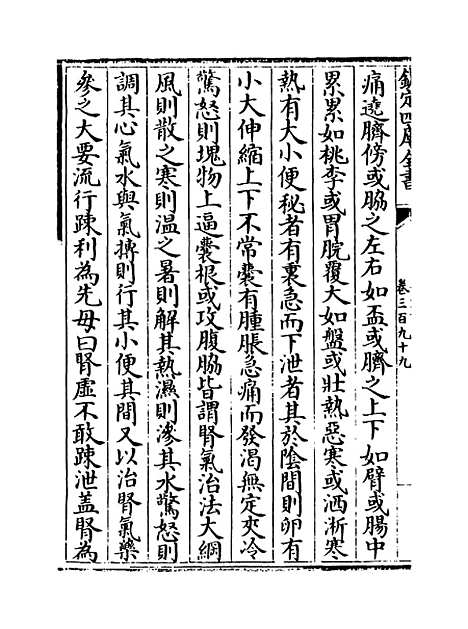 欽定四庫全書
卷三百九十九
痛遶臍傍或脇之左右如盃或臍之上下如臂或腸中
累累如桃李或胃脘覆大如盤或壯熱惡寒或洒淅寒
熱有大小便秘者有裏急而下泄者其於陰間則卵有
小大伸縮上下不常囊有腫脹急痛而發渴無定夾冷
驚怒則塊物上逼囊根或攻腹脇皆謂腎氣治法大綱
風則散之寒則温之暑則解其熱濕則滲其水驚怒則
調其心氣水與氣摶則行其小便其間又以治腎氣藥
參之大要流行踈利為先毋曰腎虚不敢踈泄蓋腎為